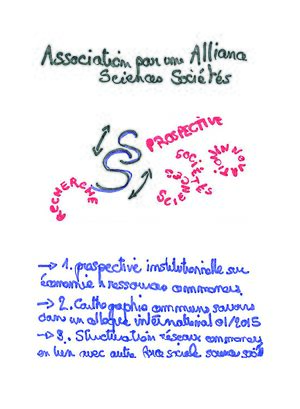 Association pour une Alliance
Sciences Sociétés
PROSPECTIVE
RECHERCHE
SCIENCES
SOCIÉTÉS
INNOVATION
→ 1. prospective institutionnelle sur
économie & ressources communes.
→ 2. Cartographie communs savoirs
dans un colloque international 01/2015
→ 3. Structuration réseau communs
en lien avec autre force sociale sciences société